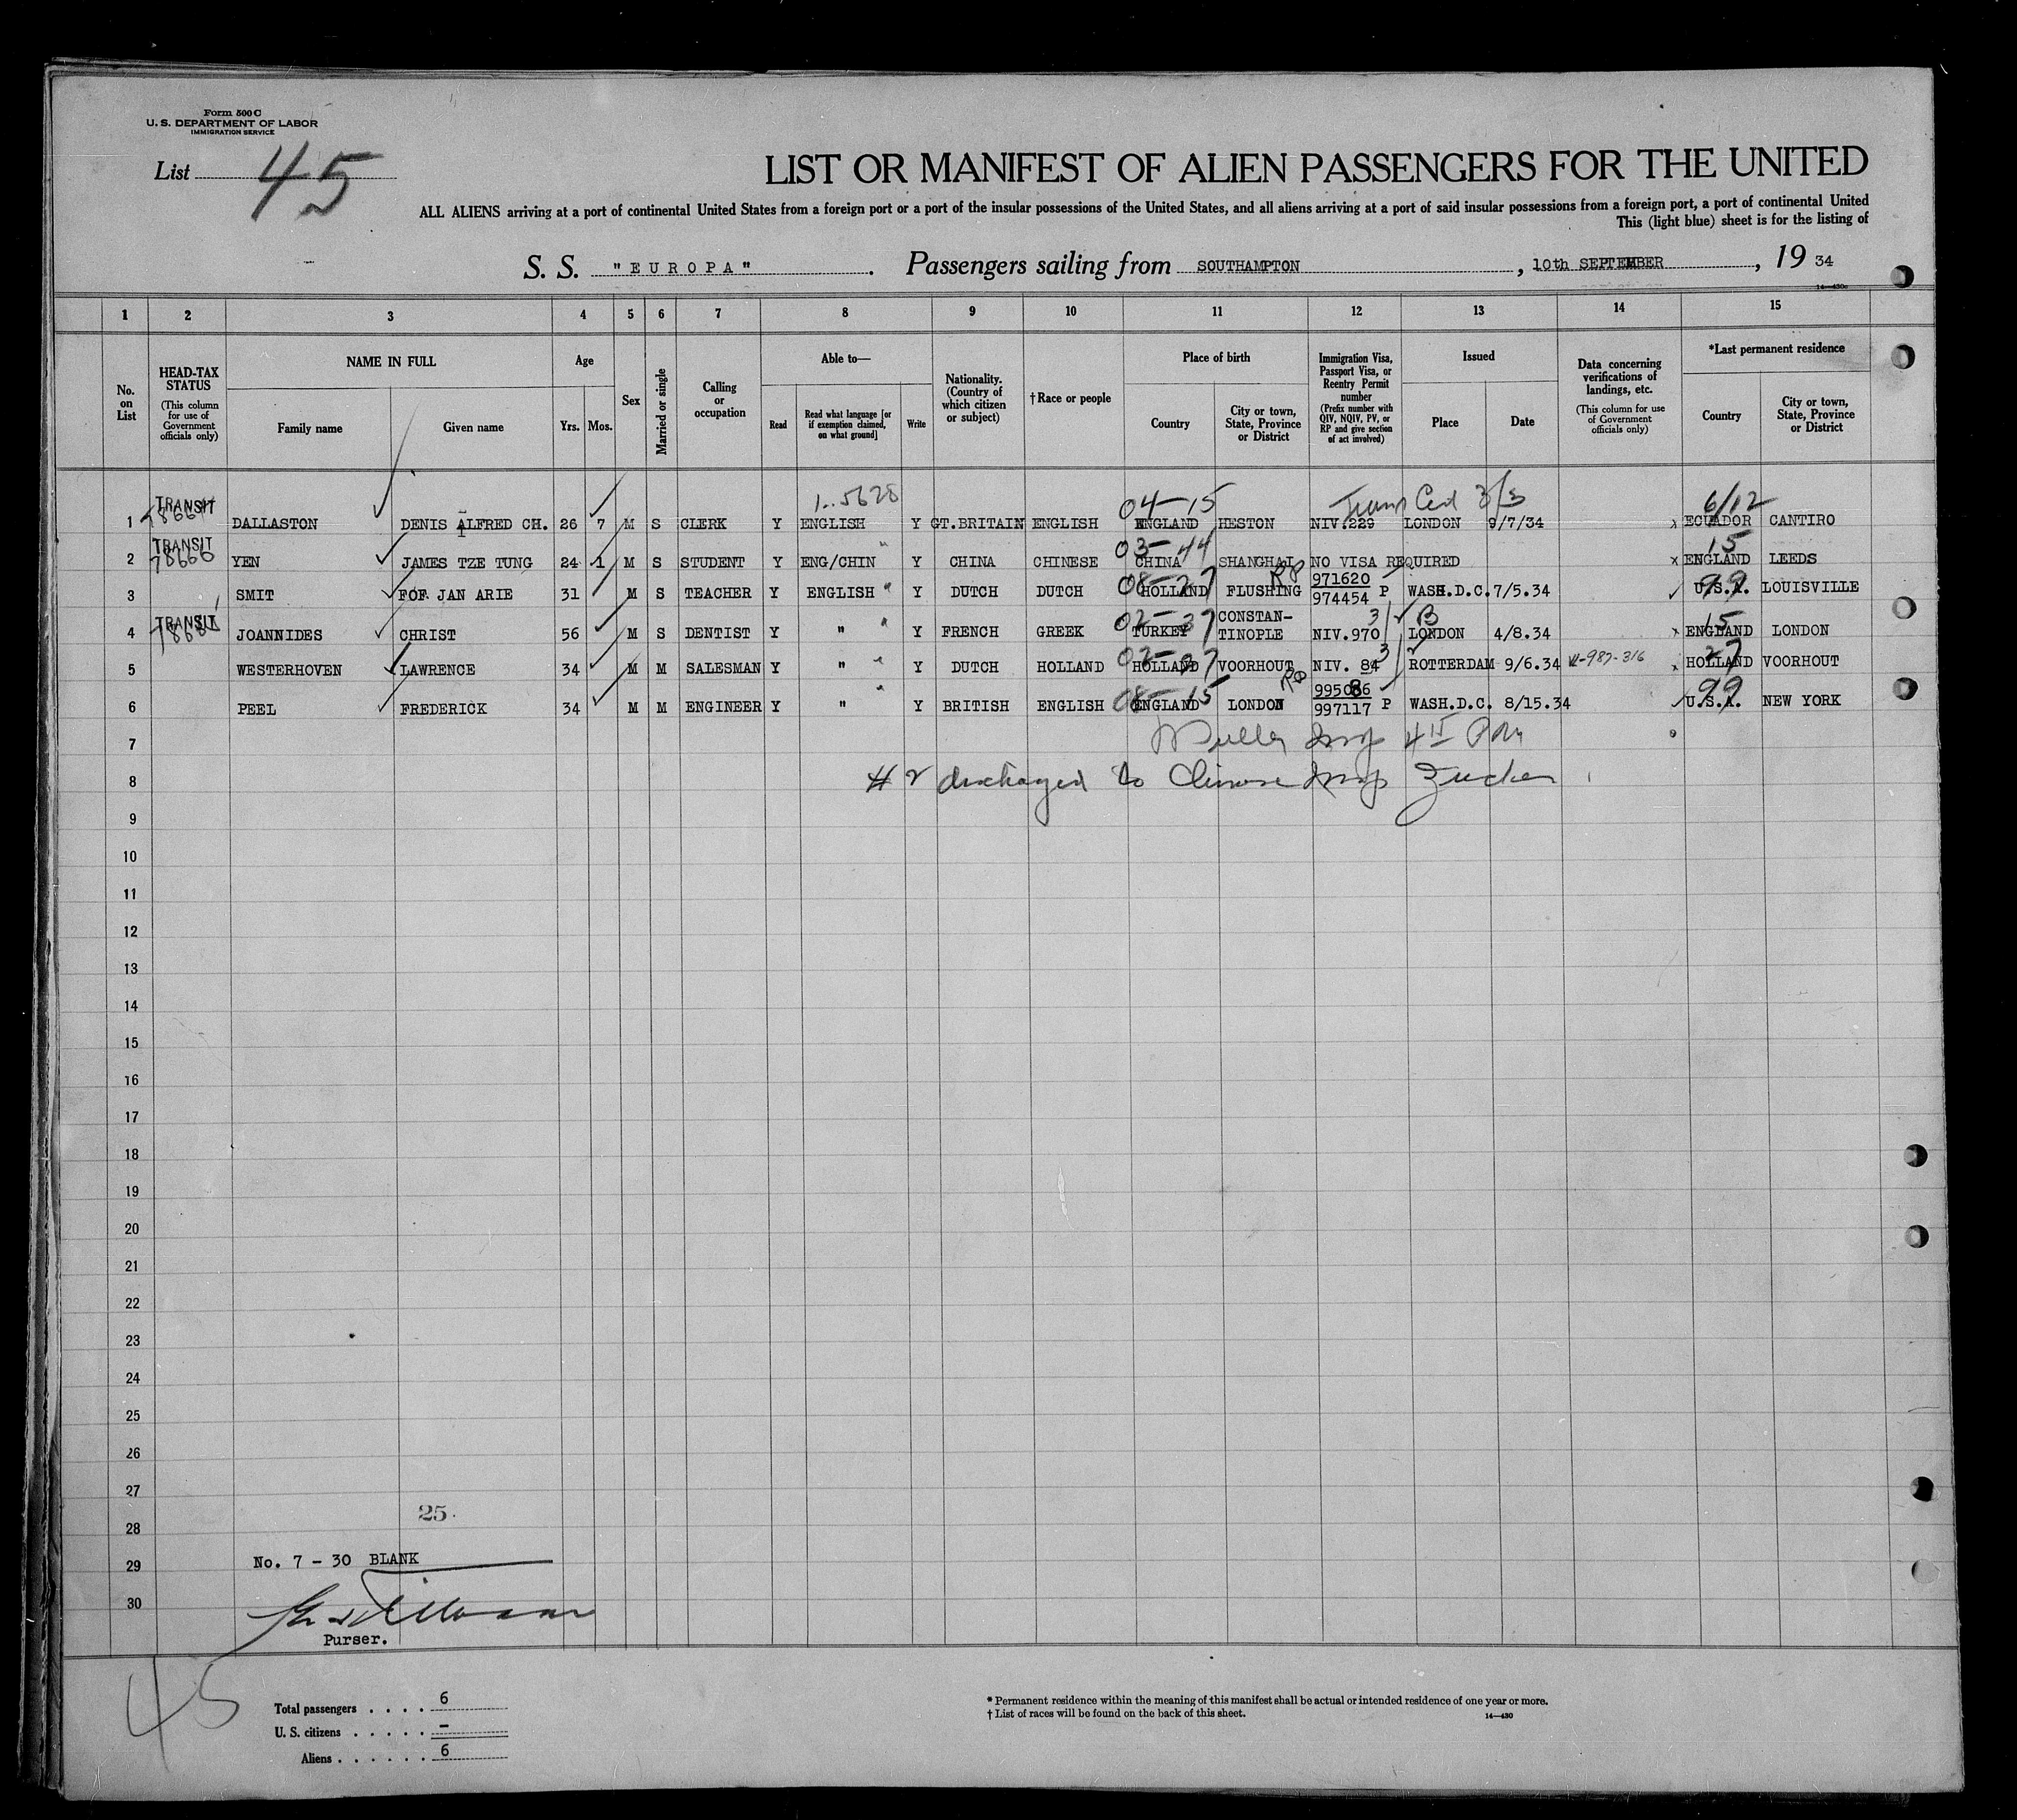 Form 500 C
U. S. DEPARTMENT OF LABOR
IMMIGRATION SERVICE
List 45
LIST OR MANIFEST OF ALIEN PASSENGERS FOR THE UNITED
ALL ALIENS arriving at a port of continental United States from a foreign port or a port of the insular possessions of the United States, and all aliens arriving at a port of said insular possessions from a foreign port, a port of continental United
This (light blue) sheet is for the listing of
S. S. "EUROPA" . Passengers sailing from SOUTHAMPTON , 10th SEPTEMBER , 19 34
14—430c
1 2 3 4 5 6 7 8 9 10 11 12 13 14 15
No. on List
HEAD-TAX STATUS (This column for use of Government officials only)
NAME IN FULL
Family name Given name
Age
Yrs. Mos.
Sex
Married or single
Calling or occupation
Able to—
Read Read what language [or if exemption claimed, on what ground] Write
Nationality. (Country of which citizen or subject)
† Race or people
Place of birth
Country City or town, State, Province or District
Immigration Visa, Passport Visa, or Reentry Permit number (Prefix number with QIV, NQIV, PV, or RP and give section of act involved)
Issued
Place Date
Data concerning verifications of landings, etc. (This column for use of Government officials only)
*Last permanent residence
Country City or town, State, Province or District
04-15 3/3 6/12
1 TRANSIT DALLASTON DENIS ALFRED CH. 26 7 M S CLERK Y ENGLISH Y GT.BRITAIN ENGLISH ENGLAND HESTON NIV.229 LONDON 9/7/34 x ECUADOR CANTIRO
03-44 15
2 TRANSIT 78666 YEN JAMES TZE TUNG 24 1 M S STUDENT Y ENG/CHIN Y CHINA CHINESE CHINA SHANGHAI NO VISA REQUIRED x ENGLAND LEEDS
08-27 RP 971620 99
3 SMIT FOF JAN ARIE 31 M S TEACHER Y ENGLISH " Y DUTCH DUTCH HOLLAND FLUSHING 974454 P WASH.D.C. 7/5.34 U.S.A. LOUISVILLE
02-37 CONSTAN- 3 B 15
4 TRANSIT JOANNIDES CHRIST 56 M S DENTIST Y " Y FRENCH GREEK TURKEY TINOPLE NIV.970 LONDON 4/8.34 x ENGLAND LONDON
02-27 3 2 27
5 WESTERHOVEN LAWRENCE 34 M M SALESMAN Y " Y DUTCH HOLLAND HOLLAND VOORHOUT NIV. 84 ROTTERDAM 9/6.34 x HOLLAND VOORHOUT
08-15 RP 99
6 PEEL FREDERICK 34 M M ENGINEER Y " Y BRITISH ENGLISH ENGLAND LONDON 997117 P WASH.D.C. 8/15.34 U.S.A. NEW YORK
7
8 # 2 discharged to Chinese Insp Zucker
9
10
11
12
13
14
15
16
17
18
19
20
21
22
23
24
25
26
27
25
28
29 No. 7 - 30 BLANK
30
Purser.
45
Total passengers . . . . 6
U. S. citizens . . . . . –
Aliens . . . . . . 6
* Permanent residence within the meaning of this manifest shall be actual or intended residence of one year or more.
† List of races will be found on the back of this sheet. 14—430